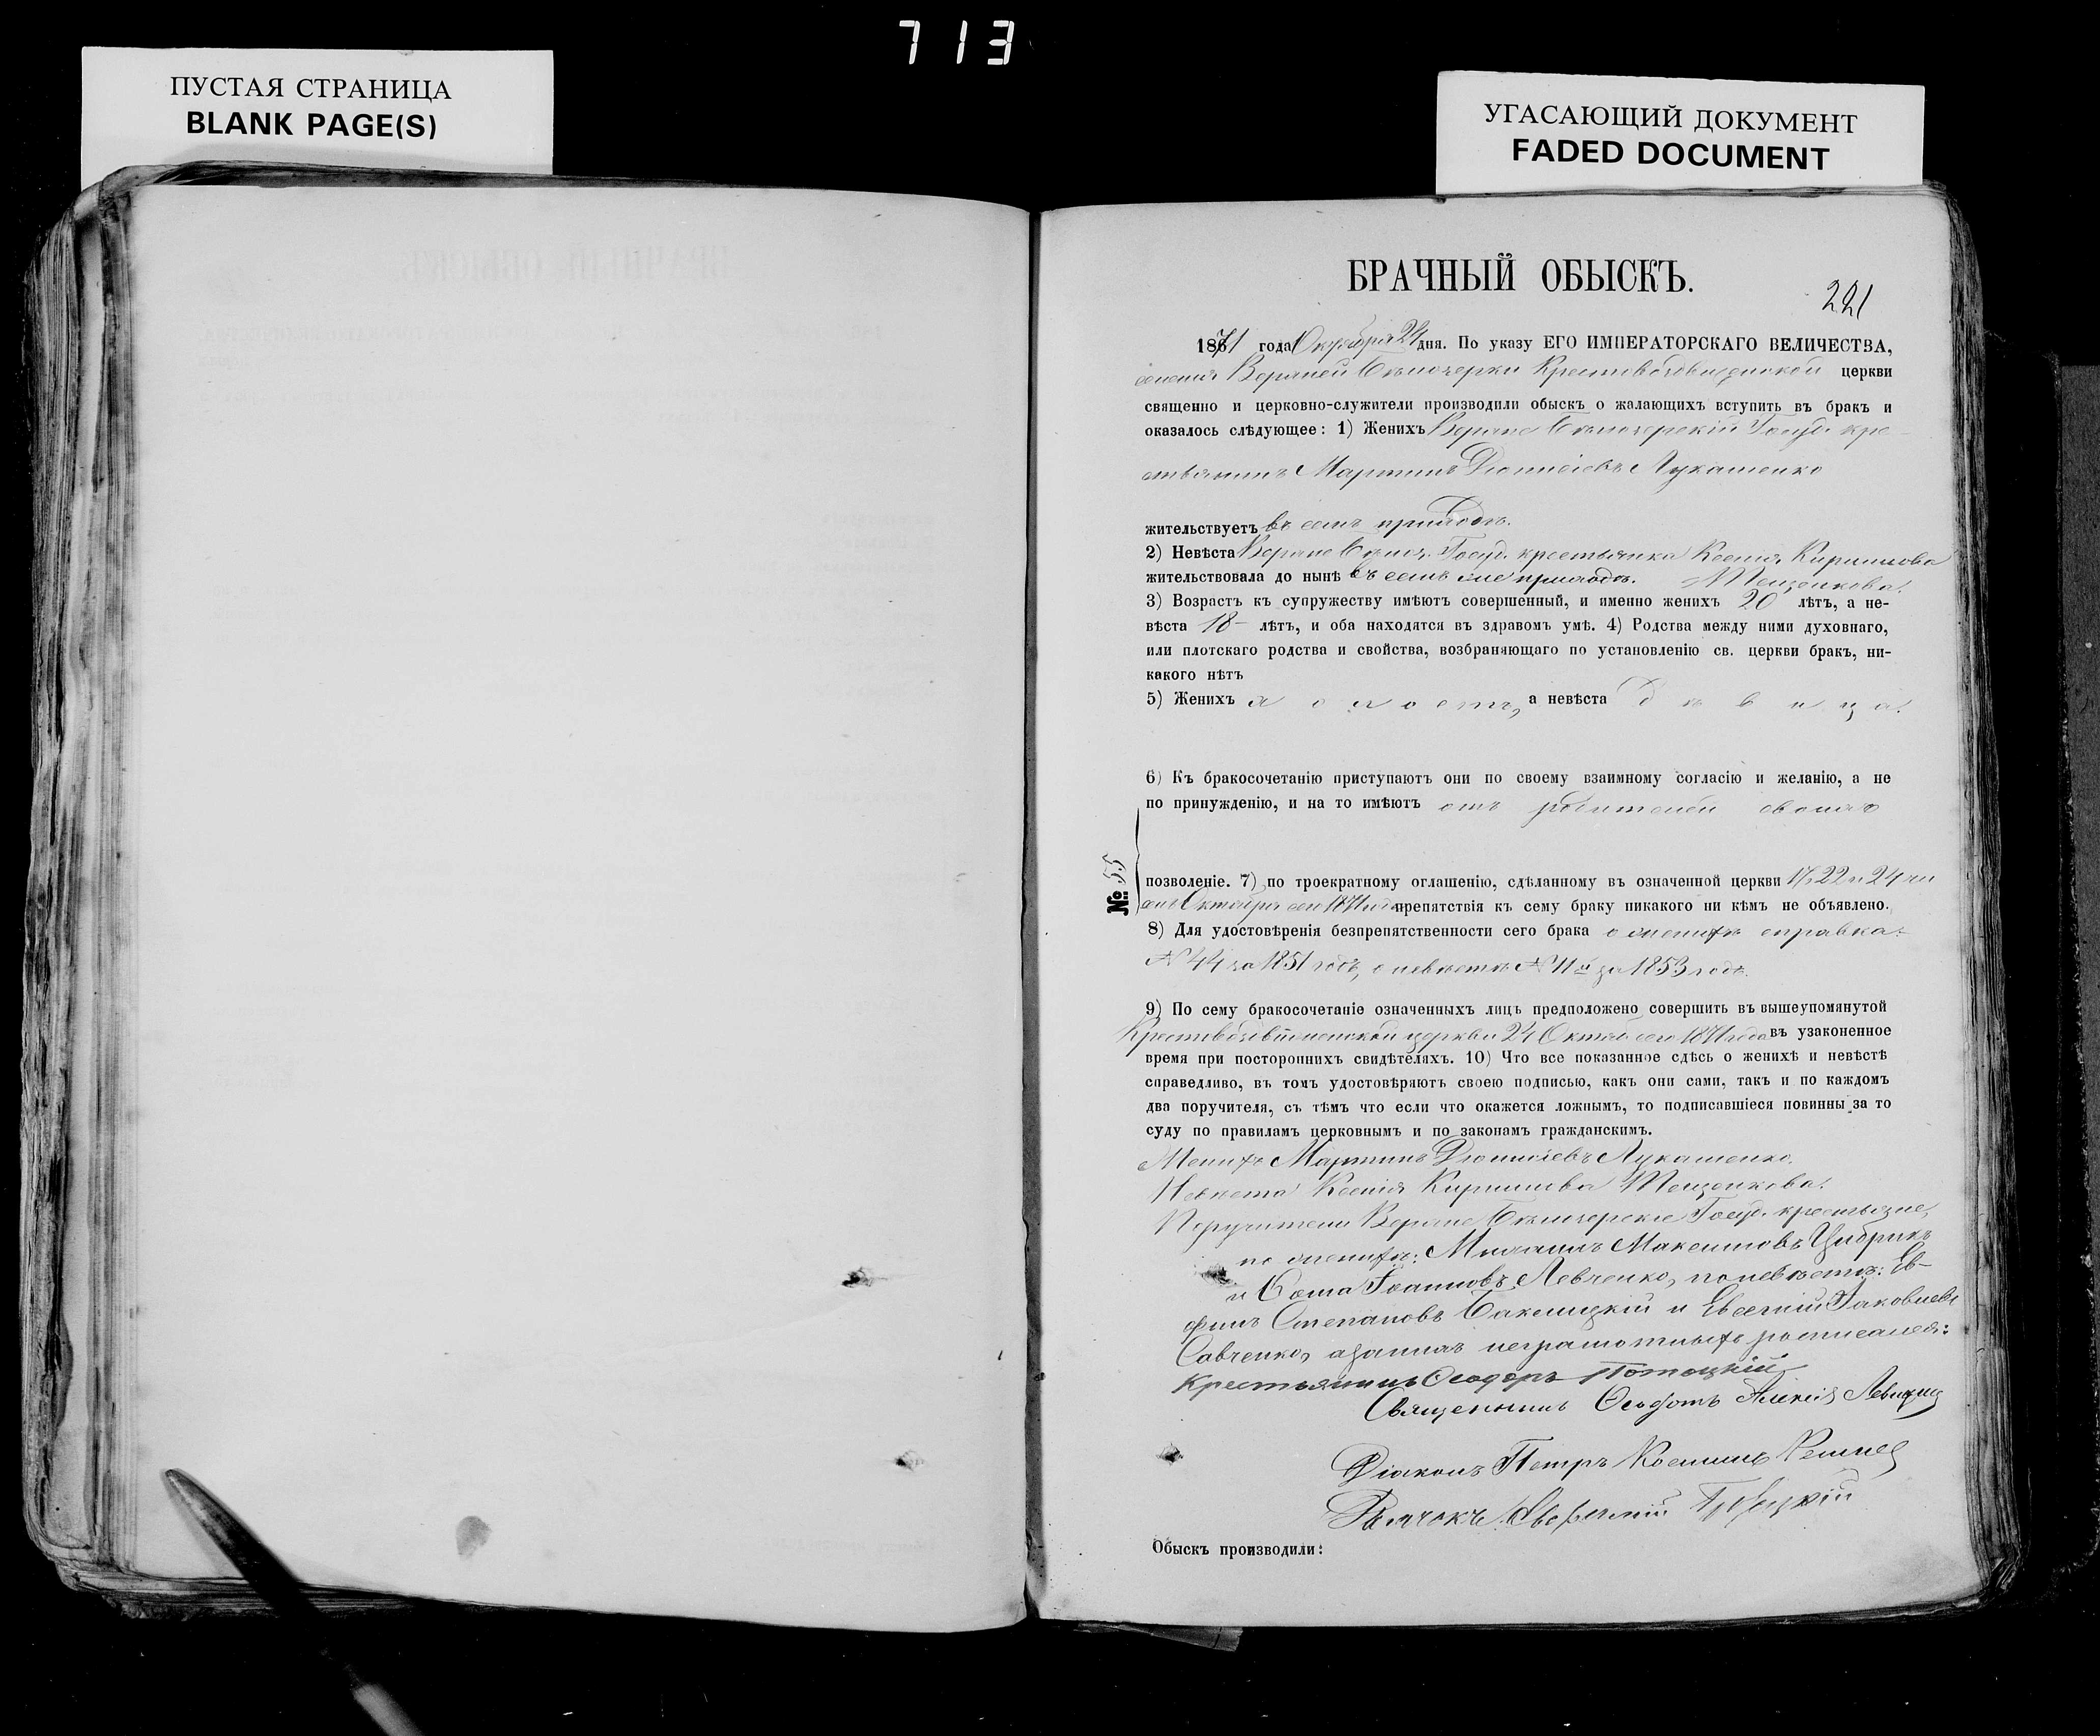 713
ПУСТАЯ СТРАНИЦА
BLANK PAGE(S)
УГАСАЮЩИЙ ДОКУМЕНТ
FADED DOCUMENT
БРАЧНЫЙ ОБЫСКЪ.
221
1871 года Октября 24 дня. По указу ЕГО ИМПЕРАТОРСКАГО ВЕЛИЧЕСТВА,
селенія Верхней Бѣлозерки Крестовоздвиженской церкви
священно и церковно-служители производили обыскъ о жалающихъ вступить въ бракъ и
оказалось слѣдующее: 1) Женихъ Верхне Бѣлозерскій Госуд. кре-
стьянинъ Мартинъ Діонисіевъ Лукашенко
жительствуетъ въ семъ приходѣ.
2) Невѣста Верхне Бѣлоз. Госуд. крестьянка Ксенія Кириллова
жительствовала до нынѣ въ семъ же приходѣ.
3) Возрастъ къ супружеству имѣютъ совершенный, и именно женихъ 20 лѣтъ, а не-
вѣста 18 лѣтъ, и оба находятся въ здравомъ умѣ. 4) Родства между ними духовнаго,
или плотскаго родства и свойства, возбраняющаго по установленію св. церкви бракъ, ни-
какого нѣтъ
5) Женихъ холостъ, а невѣста дѣвица.
6) Къ бракосочетанію приступаютъ они по своему взаимному согласію и желанію, а не
по принужденію, и на то имѣютъ отъ родителей своихъ
№ 55
позволеніе. 7) по троекратному оглашенію, сдѣланному въ означенной церкви 17, 22 и 24 чи
слъ Октября сего 1871 года препятствія къ сему браку никакого ни кѣмъ не объявлено.
8) Для удостовѣренія безпрепятственности сего брака о женихѣ справка:
№ 44 за 1851 годъ, о невѣстѣ № 11й за 1853 годъ.
9) По сему бракосочетаніе означенныхъ лицъ предположено совершить въ вышеупомянутой
Крестовоздвиженской церкви 24 Октяб. сего 1871 года въ узаконенное
время при постороннихъ свидѣтеляхъ. 10) Что все показанное сдѣсь о женихѣ и невѣстѣ
справедливо, въ томъ удостовѣряютъ своею подписью, какъ они сами, такъ и по каждомъ
два поручителя, съ тѣмъ что если что окажется ложнымъ, то подписавшіеся повинны за то
суду по правиламъ церковнымъ и по законамъ гражданскимъ.
Женихъ Мартинъ Діонисіевъ Лукашенко.
Невѣста Ксенія Кириллова
Поручители Верхне Бѣлозерскіе Госуд. крестьяне,
по женихѣ: Михаилъ Максимовъ Цыбрикъ
и Ѳома Іоанновъ Левченко, по невѣстѣ: Ев-
фимъ Степановъ и Евсегній Іаковлевъ
Савченко, а за нихъ неграмотныхъ росписался:
Крестьянинъ Ѳеодоръ Потоцкій
Священникъ Ѳеофотъ Алексій
Діаконъ Петръ Косминъ
Дьячокъ
Обыскъ производили: